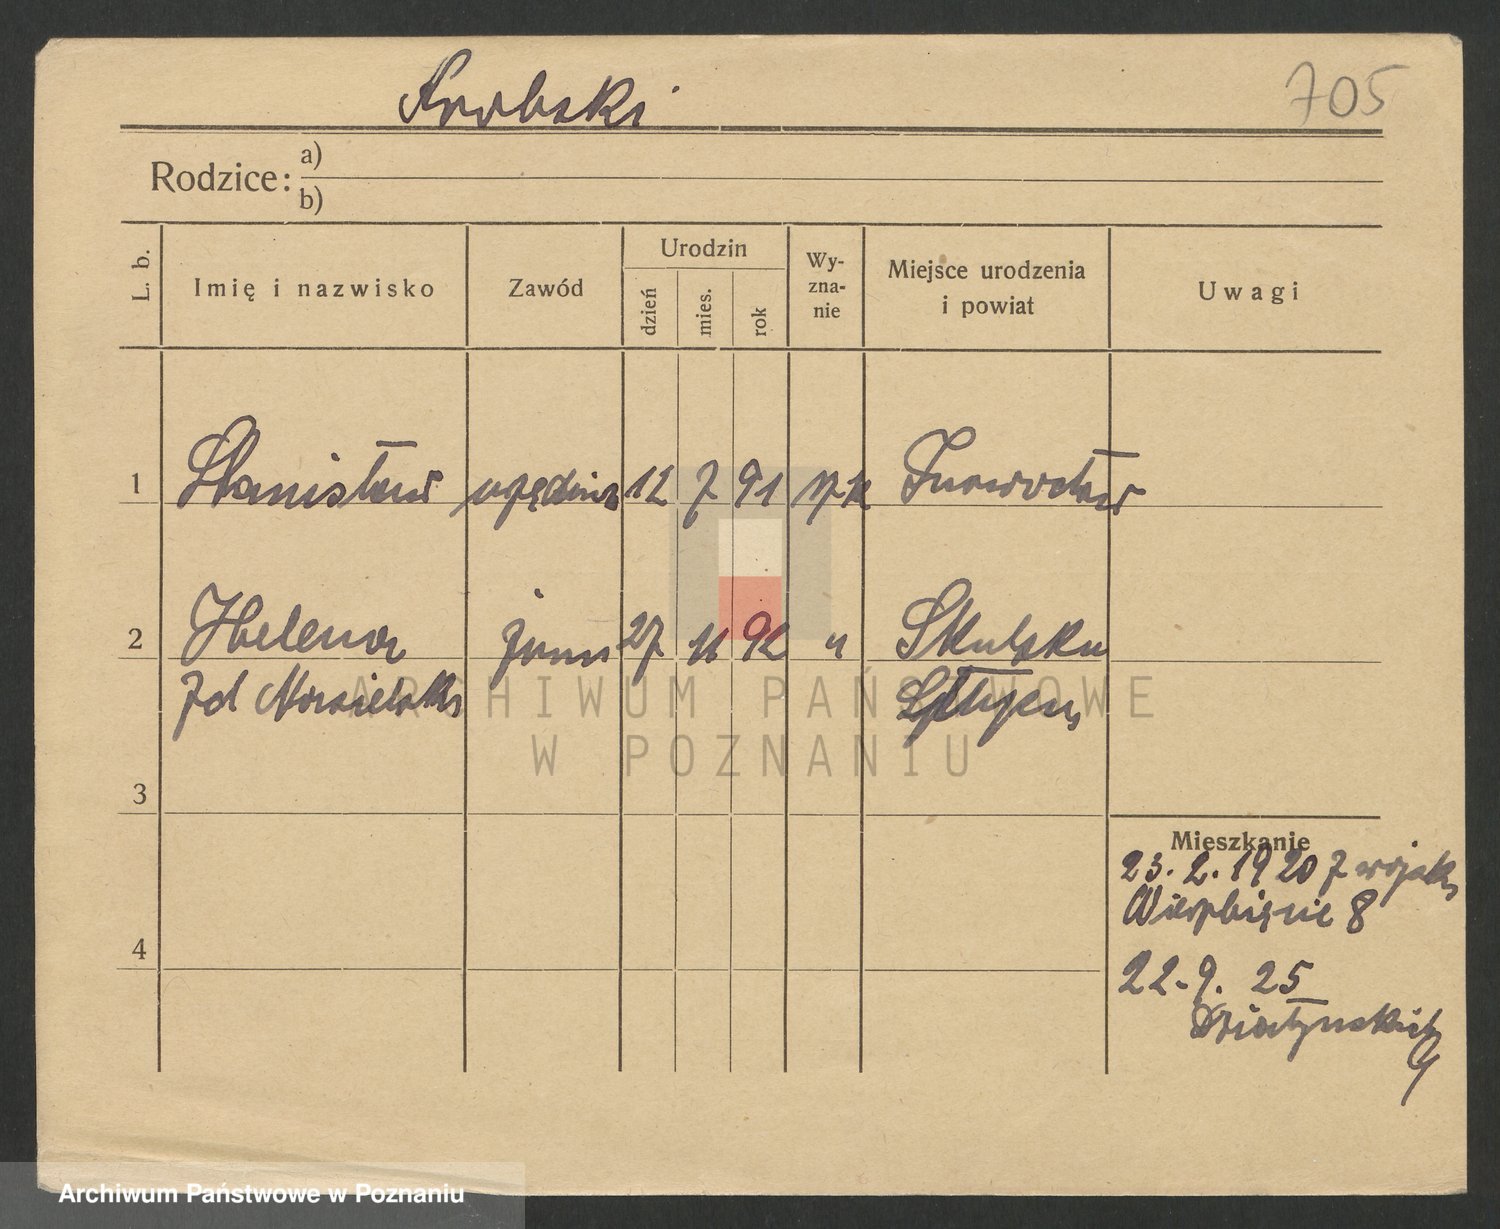 705
Rodzice: a)
b)
L. b.
Imię i nazwisko
Zawód
Urodzin
dzień
mies.
rok
Wy-
zna-
nie
Miejsce urodzenia
i powiat
Uwagi
1 Stanisław urzędnik 12 7 91 rz-k Inowrocław
2 Helena żona 27 11 92 "
3
Mieszkanie
23. 2. 1920 z wojska
Wierzbięcie 8
4
22. 9. 25
Działyńskich
9
ARCHIWUM PAŃSTWOWE
W POZNANIU
Archiwum Państwowe w Poznaniu